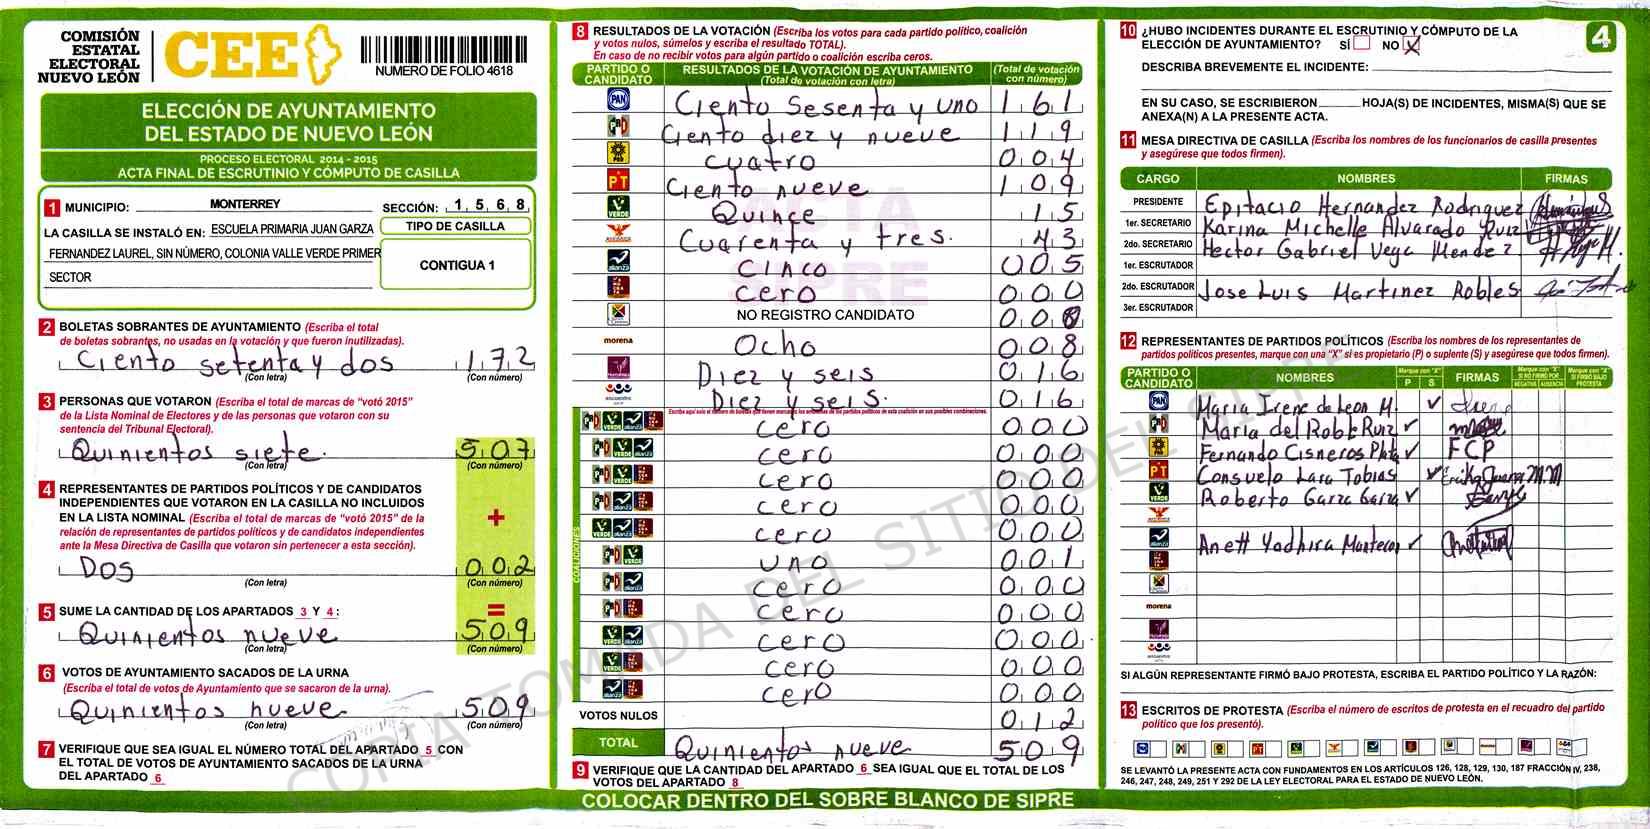 COMISIÓN
ESTATAL
ELECTORAL
NUEVO LEÓN
CEE
NUMERO DE FOLIO 4618
ELECCIÓN DE AYUNTAMIENTO
DEL ESTADO DE NUEVO LEÓN
PROCESO ELECTORAL 2014 - 2015
ACTA FINAL DE ESCRUTINIO Y CÓMPUTO DE CASILLA
1 MUNICIPIO: MONTERREY SECCIÓN: 1,5,6,8
LA CASILLA SE INSTALÓ EN: ESCUELA PRIMARIA JUAN GARZA
FERNANDEZ LAUREL, SIN NÚMERO, COLONIA VALLE VERDE PRIMER
SECTOR
TIPO DE CASILLA
CONTIGUA 1
2 BOLETAS SOBRANTES DE AYUNTAMIENTO (Escriba el total
de boletas sobrantes, no usadas en la votación y que fueron inutilizadas).
Ciento setenta y dos 1 7 2
(Con letra) (Con número)
3 PERSONAS QUE VOTARON (Escriba el total de marcas de "votó 2015"
de la Lista Nominal de Electores y de las personas que votaron con su
sentencia del Tribunal Electoral).
Quinientos siete. 5 0 7
(Con letra) (Con número)
4 REPRESENTANTES DE PARTIDOS POLÍTICOS Y DE CANDIDATOS
INDEPENDIENTES QUE VOTARON EN LA CASILLA NO INCLUIDOS
EN LA LISTA NOMINAL (Escriba el total de marcas de "votó 2015" de la
relación de representantes de partidos políticos y de candidatos independientes
ante la Mesa Directiva de Casilla que votaron sin pertenecer a esta sección).
+
Dos 0 0 2
(Con letra) (Con número)
5 SUME LA CANTIDAD DE LOS APARTADOS 3 Y 4: =
Quinientos nueve 5 0 9
(Con letra) (Con número)
6 VOTOS DE AYUNTAMIENTO SACADOS DE LA URNA
(Escriba el total de votos de Ayuntamiento que se sacaron de la urna).
Quinientos nueve 5 0 9
(Con letra) (Con número)
7 VERIFIQUE QUE SEA IGUAL EL NÚMERO TOTAL DEL APARTADO 5 CON
EL TOTAL DE VOTOS DE AYUNTAMIENTO SACADOS DE LA URNA
DEL APARTADO 6
8 RESULTADOS DE LA VOTACIÓN (Escriba los votos para cada partido político, coalición
y votos nulos, súmelos y escriba el resultado TOTAL).
En caso de no recibir votos para algún partido o coalición escriba ceros.
PARTIDO O CANDIDATO RESULTADOS DE LA VOTACIÓN DE AYUNTAMIENTO (Total de votación con letra) (Total de votación con número)
PAN Ciento sesenta y uno 1 6 1
PRD Ciento diez y nueve 1 1 9
PRD cuatro 0 0 4
PT Ciento nueve 1 0 9
VERDE Quince 1 5
Cuarenta y tres. 4 3
alianza cinco 0 0 5
cero 0 0 0
NO REGISTRO CANDIDATO 0 0 0
morena Ocho 0 0 8
Diez y seis 0 1 6
encuentro Diez y seis. 0 1 6
COALICIONES
cero 0 0 0
cero 0 0 0
cero 0 0 0
cero 0 0 0
cero 0 0 0
uno 0 0 1
cero 0 0 0
cero 0 0 0
cero 0 0 0
cero 0 0 0
cero 0 0 0
VOTOS NULOS 0 1 2
TOTAL Quinientos nueve 5 0 9
9 VERIFIQUE QUE LA CANTIDAD DEL APARTADO 6 SEA IGUAL QUE EL TOTAL DE LOS
VOTOS DEL APARTADO 8
COLOCAR DENTRO DEL SOBRE BLANCO DE SIPRE
ACTA
SIPRE
COPIA TOMADA DEL SITIO DEL SIPRE
4
10 ¿HUBO INCIDENTES DURANTE EL ESCRUTINIO Y CÓMPUTO DE LA
ELECCIÓN DE AYUNTAMIENTO? SÍ NO X
DESCRIBA BREVEMENTE EL INCIDENTE:
EN SU CASO, SE ESCRIBIERON HOJA(S) DE INCIDENTES, MISMA(S) QUE SE
ANEXA(N) A LA PRESENTE ACTA.
11 MESA DIRECTIVA DE CASILLA (Escriba los nombres de los funcionarios de casilla presentes
y asegúrese que todos firmen).
CARGO NOMBRES FIRMAS
PRESIDENTE Epitacio Hernandez Rodriguez
1er. SECRETARIO Karina Michelle Alvarado Ruiz
2do. SECRETARIO Hector Gabriel Vega Mendez
1er. ESCRUTADOR
2do. ESCRUTADOR Jose Luis Martinez Robles
3er. ESCRUTADOR
12 REPRESENTANTES DE PARTIDOS POLÍTICOS (Escriba los nombres de los representantes de
partidos políticos presentes, marque con una "X" si es propietario (P) o suplente (S) y asegúrese que todos firmen).
PARTIDO O CANDIDATO NOMBRES Marque con "X" P S FIRMAS Marque con "X" SI NO FIRMÓ POR NEGATIVA AUSENCIA Marque con "X" SI FIRMÓ BAJO PROTESTA
PAN Maria Irene de Leon M.
Maria del Roble Ruiz
Fernando Cisneros Plata FCP
PT Consuelo Lara Tobias
VERDE Roberto Garza Garza
alianza Anett Yadhira
morena
encuentro
SI ALGÚN REPRESENTANTE FIRMÓ BAJO PROTESTA, ESCRIBA EL PARTIDO POLÍTICO Y LA RAZÓN:
13 ESCRITOS DE PROTESTA (Escriba el número de escritos de protesta en el recuadro del partido
político que los presentó).
SE LEVANTÓ LA PRESENTE ACTA CON FUNDAMENTOS EN LOS ARTÍCULOS 126, 128, 129, 130, 187 FRACCIÓN IV, 238,
246, 247, 248, 249, 251 Y 292 DE LA LEY ELECTORAL PARA EL ESTADO DE NUEVO LEÓN.